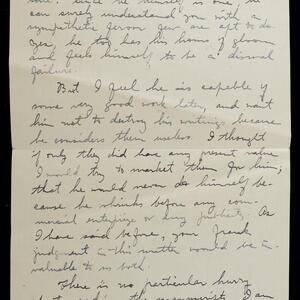 sort. Since he himself is one, he
can surely understand you with a
sympathetic fervor few are apt to do.
Yes, he too has his hours of gloom
and feels himself to be a dismal
failure.
But I feel he is capable of
some very good work later, and want
him not to destroy his writings because
he considers them useless. I thought
if only they did have any present value
I would try to market them for him;
that he would never do himself be-
cause he shrinks before any com-
mercial enterprize or any publicity. As
I have said before, your frank
judgment in this matter would be in-
valuable to us both.
There is no particular hurry
I am